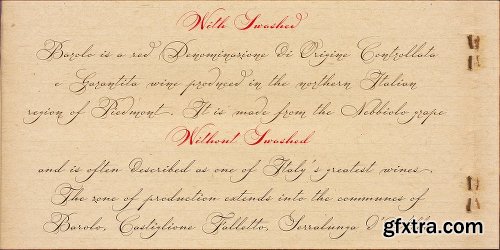 With Swashed
Barolo is a red Denominazione di Origine Controllata
e Garantita wine produced in the northern Italian
region of Piedmont. It is made from the Nebbiolo grape
Without Swashed
and is often described as one of Italy's greatest wines.
The zone of production extends into the communes of
Barolo, Castiglione Falletto, Serralunga
gfxtra.com